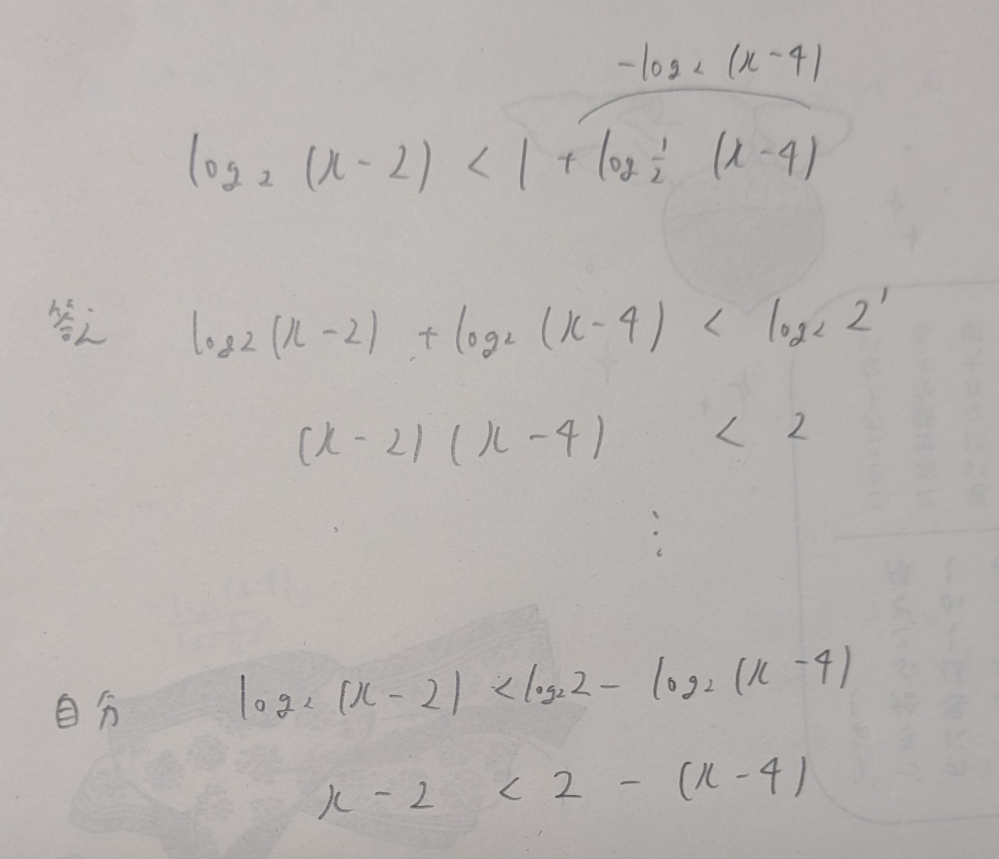 -log₂ (x-4)
log₂ (x-2) < 1 + log½ (x-4)
答え log₂(x-2) + log₂ (x-4) < log₂ 2¹
(x-2) (x-4) < 2
⋮
自分 log₂ (x-2) < log₂2 - log₂ (x-4)
x-2 < 2 - (x-4)